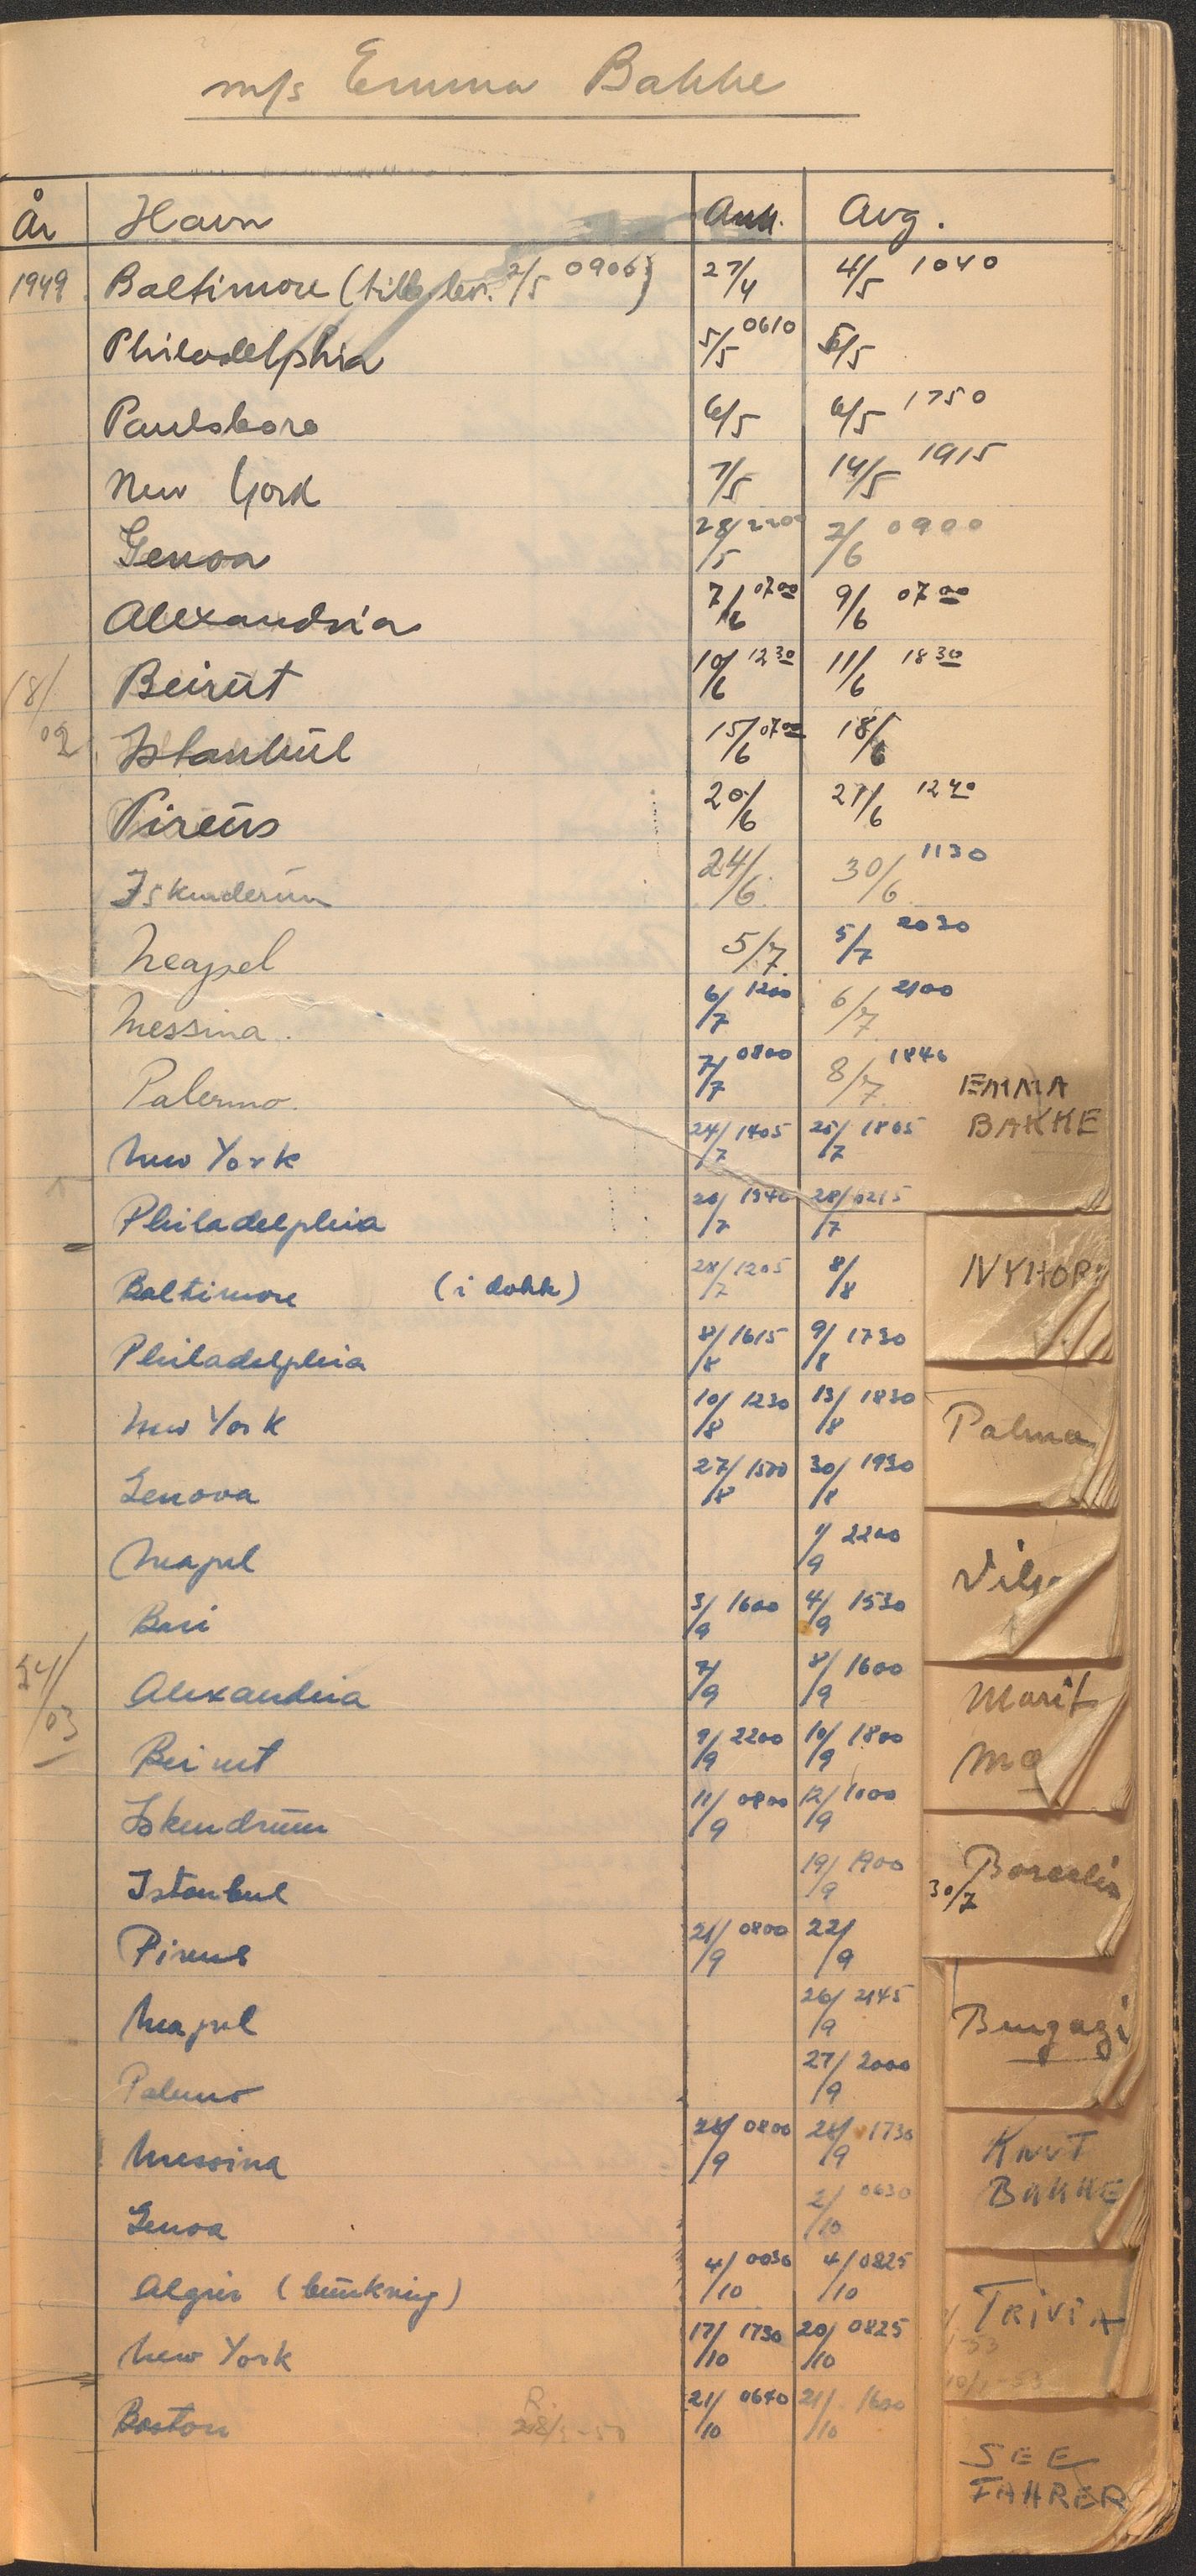 m/s Emma Bakke
År Havn Ank. Avg.
1949 Baltimore (tilb. lev. 2/5 0906) 27/4 4/5 1040
Philadelphia 5/5 0610 5/5
Paulsboro 6/5 6/5 1750
New York 7/5 14/5 1915
Genoa 28/5 2200 2/6 0900
Alexandria 7/6 0700 9/6 0700
Beirut 10/6 1230 11/6 1830
18/02
Istanbul 15/6 0700 18/6
Pireus 20/6 21/6 1240
Iskenderun 24/6 30/6 1130
Neapel 5/7 5/7 2030
Messina 6/7 1200 6/7 2100
Palermo 7/7 0800 8/7 1840
EMMA
BAKKE
New York 24/7 1405 25/7 1805
Philadelphia 26/7 1340 28/7 0215
Baltimore (i dokk) 28/7 1205 8/8
NYHORN
Philadelphia 8/8 1615 9/8 1730
New York 10/8 1230 13/8 1830
Palma
Genova 27/8 1500 30/8 1930
Neapel 1/9 2200
Vils
Bari 3/9 1600 4/9 1530
24/03
Alexandria 7/9 8/9 1600
Marit
Ma
Beirut 9/9 2200 10/9 1800
Iskendrun 11/9 0800 12/9 1000
Istanbul 19/9 1900
30/7
Pireus 21/9 0800 22/9
Neapel 26/9 2145
Palermo 27/9 2000
Messina 28/9 0800 28/9 1730
KNUT
BAKKE
Genoa 2/10 0630
Algier (bunkring) 4/10 0030 4/10 0825
TRIVIA
New York 17/10 1730 20/10 0825
Boston 21/10 0640 21/10 1600
SEE
FAHRER